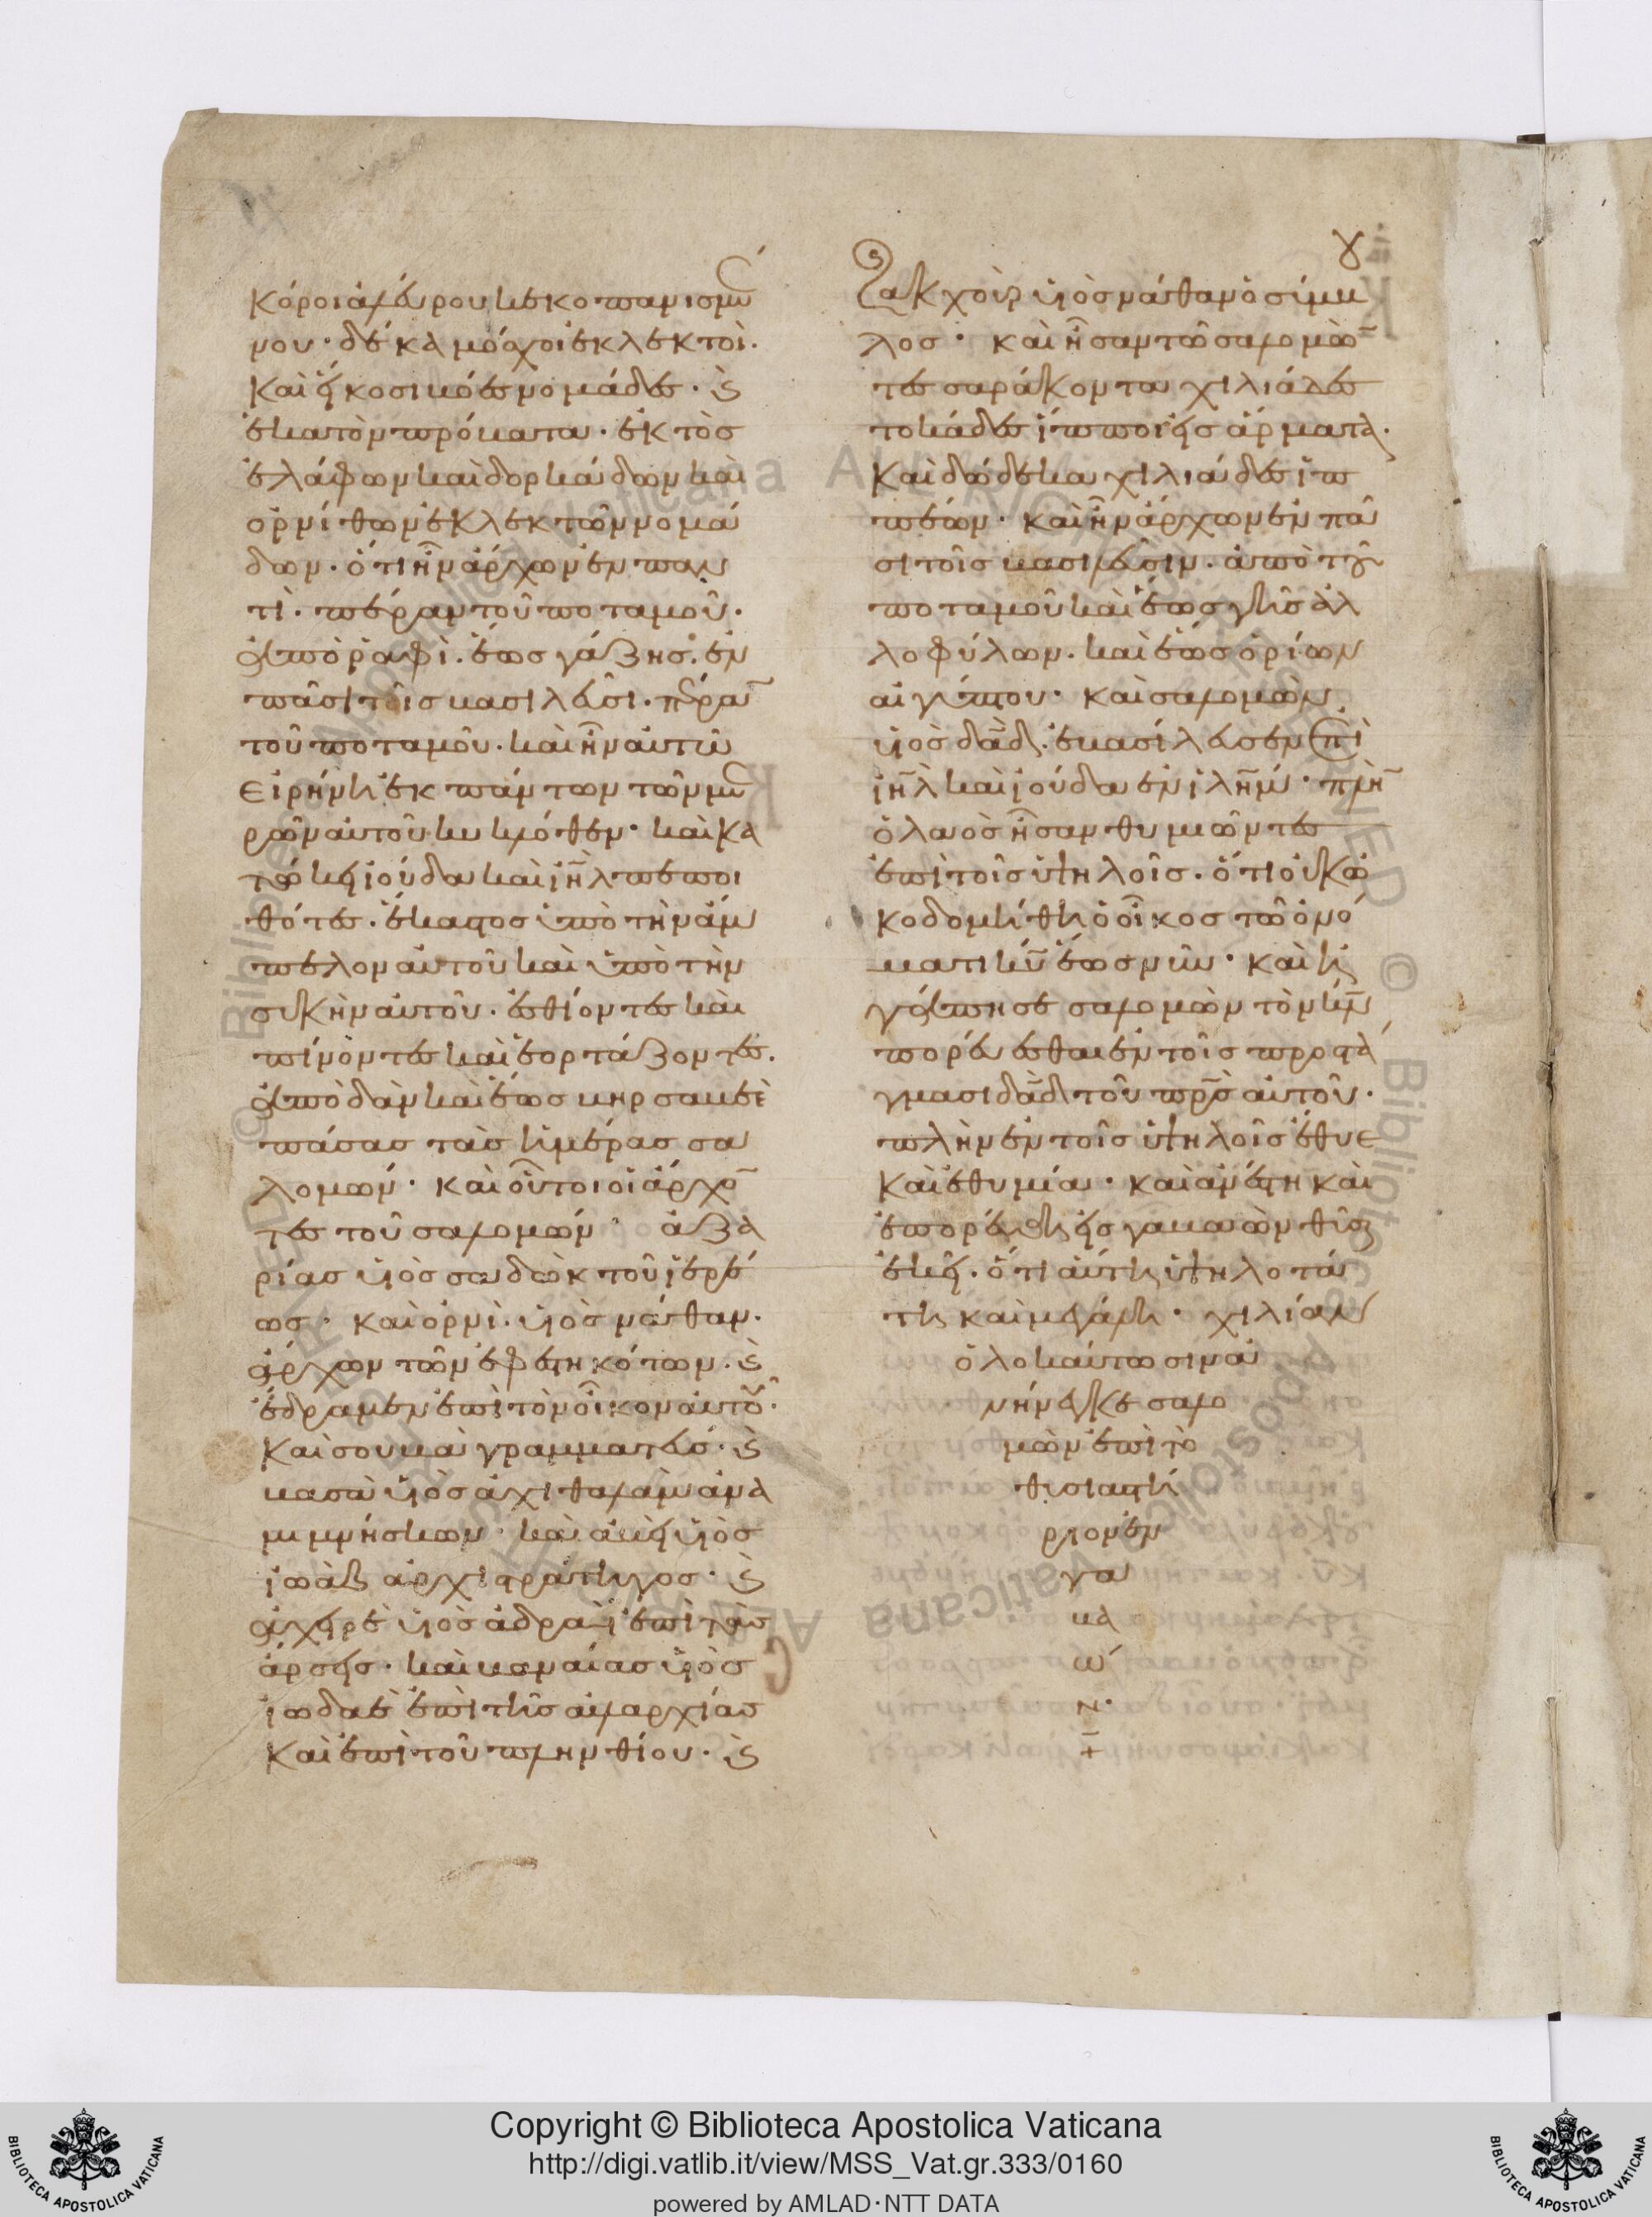 κόροι ἀλεύρου κεκοπανισμέ
νου· δέκα μόσχοι ἐκλεκτοὶ.
καὶ εἴκοσι βόες νομάδες· καὶ
ἑκατὸν πρόβατα· ἐκτὸς
ἐλάφων καὶ δορκάδων καὶ
ὀρνίθων ἐκλεκτῶν νομά
δων· ὅτι ἦν ἄρχων ἐν παν
τὶ· πέραν τοῦ ποταμοῦ·
ἀπὸ ῥαφὶ· ἕως γάζης· ἐν
πᾶσι τοῖς βασιλεῦσι· πέρα̅
τοῦ ποταμοῦ· καὶ ἦν αὐτῶ
εἰρήνη ἐκ πάντων τῶν με
ρῶν αὐτοῦ κυκλόθεν· καὶ κα
τώκει ἰούδα καὶ ι̅η̅λ πεποι
θότες· ἕκαστος ὑπὸ τὴν ἄμ
πελον αὐτοῦ καὶ ὑπὸ τὴν
συκὴν αὐτοῦ· ἐσθίοντες καὶ
πίνοντες καὶ ἑορτάζοντες.
ἀπὸ δὰν καὶ ἕως βηρσαβεὲ
πάσας τὰς ἡμέρας σα
λομών· καὶ οὗτοι οἱ ἄρχο̅
τες τοῦ σαλομών· ἀζα
ρίας υἱὸς σαδὼκ τοῦ ἱερέ
ως· καὶ ὀρνὶ· υἱὸς νάθαν·
ἄρχων τῶν ἐφεστηκότων· καὶ
ἔδραμεν ἐπὶ τὸν οἶκον αὐτοῦ·
καὶ σουβὰ γραμματεύς· καὶ
βασὰ υἱὸς ἀχιθαλὰμ ἀνα
μιμνήσκων· καὶ ἀβεὶ υἱὸς
ἰωὰβ ἀρχιστράτηγος· καὶ
ἀχειρὲ υἱὸς ἀδραῒ ἐπὶ τὰς
ἄρσεις· καὶ βαναίας υἱὸς
ἰωδαὲ ἐπὶ τῆς αὐλαρχίας
καὶ ἐπὶ τοῦ πλινθίου· καὶ
γ
ζακχοὺρ υἱὸς νάθαν ὁ σύμβ
λος· καὶ ἦσαν τῶ σαλομὼ̅
τεσσαράκοντα χιλιάδες
τοκάδες ἵπποι εἰς ἅρματα·
καὶ δώδεκα χιλιάδες ἱπ
πέων· καὶ ἦν ἄρχων ἐν πᾶ
σι τοῖς βασιλεῦσιν· ἀπὸ τοῦ
ποταμοῦ καὶ ἕως γῆς ἀλ
λοφύλων· καὶ ἕως ὁρίων
αἰγύπτου· καὶ σαλομὼν
υἱὸς δα̅δ· ἐβασίλευσεν ἐπὶ
ι̅η̅λ καὶ ἰούδα ἐν ι̅λ̅η̅μ· πλὴ̅
ὁ λαὸς ἦσαν θυμιῶντες
ἐπὶ τοῖς ὑψηλοῖς· ὅτι οὐκ ὠ
κοδομήθη ὁ οἶκος τῶ ὀνό
ματι κ̅υ̅ ἕως νῦν· καὶ ἠ
γάπησε σαλομὼν τὸν κ̅ν̅
πορεύεσθαι ἐν τοῖς προστά
γμασι δα̅δ τοῦ π̅ρ̅ς αὐτοῦ·
πλὴν ἐν τοῖς ὑψηλοῖς ἔθυε
καὶ ἐθυμία· καὶ ἀνέστη καὶ
ἐπορεύθη εἰς γαβαὼν θῦσαι
ἐκεῖ· ὅτι αὕτη ὑψηλοτά
τη καὶ μεγάλη· χιλίαν
ὁλοκαύτωσιν ἀ
νήνεγκε σαλο
μὼν ἐπὶ τὸ
θυσιαστή
ριον ἐν
γα
βα
ώ
ν·
+
Copyright © Biblioteca Apostolica Vaticana
http://digi.vatlib.it/view/MSS_Vat.gr.333/0160
powered by AMLAD·NTT DATA
BIBLIOTECA APOSTOLICA VATICANA
BIBLIOTECA APOSTOLICA VATICANA